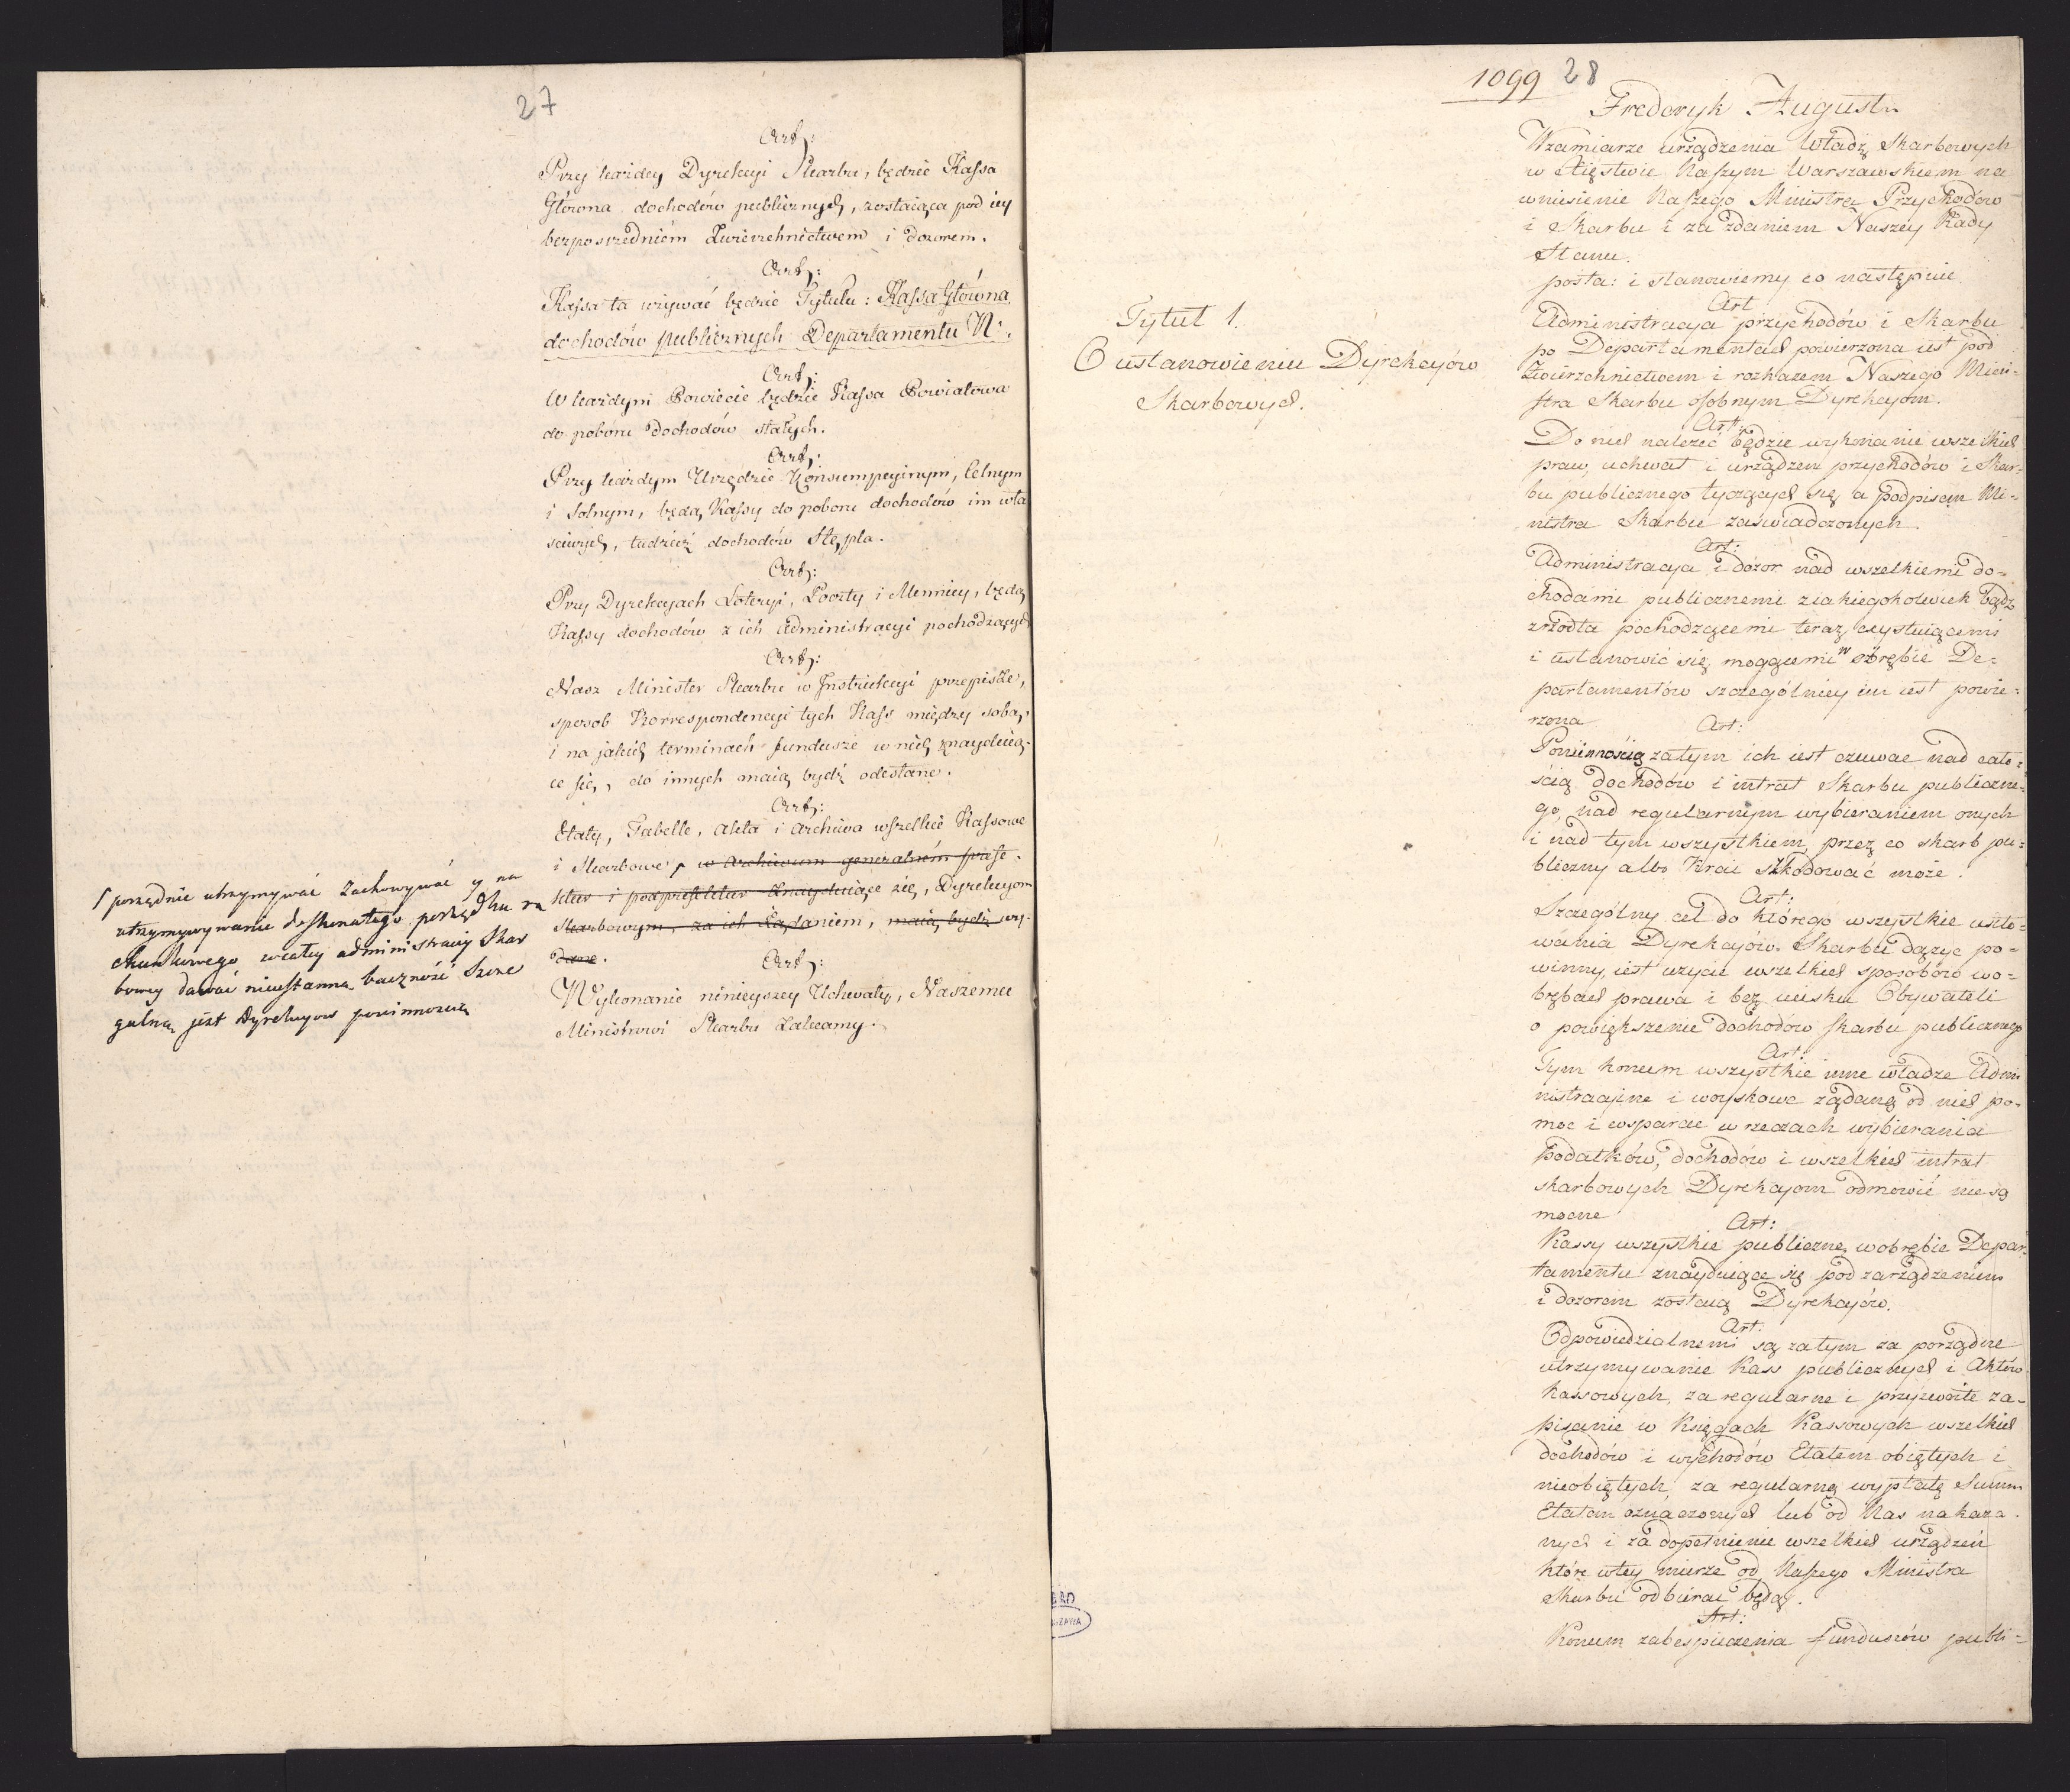 27
Art:
Przy każdey Dyrekcyi Skarbu, będzie Kassa
Główna dochodów publicznych, zostaiąca pod iey
bezposrzedniém Zwierzchnictwem i dozorem.
Art:
Kassa ta używać będzie Tytułu: Kassa Główna
dochodów publicznych Departamentu N.
Art:
W każdym Powiecie będzie Kassa Powiatowa
do poboru dochodów stałych.
Art:
Przy każdym Urzędzie Konsumpcyinym, Celnym
i Solnym, będą Kassy do poboru dochodów im wła
sciwych, tudzież dochodów Stępla.
Art:
Przy Dyrekcyach Loteryi, Poczty i Mennicy, będą
Kassy dochodów z ich Administracyi pochodzących
Art:
Nasz Minister Skarbu w Instrukcyi przepisze,
sposob Korrespondencyi tych Kass między sobą,
i na jakich terminach fundusze w nich znayduią-
ce się, do innych maią bydź odesłane.
Art:
Etaty, Tabelle, Akta i Archiwa wszelkie Kassowe
i Skarbowe, w Archiwum generalném prefe-
ktur i podprefektur znayduiące się, Dyrekcyom
Skarbowym, za ich żądaniem, maią bydź wy-
dane.
porządnie utrzymywać zachowywać y na
utrzymywanie doskonałego porządku ra
chunkowego w całey administracyi Skar
bowey dawać nieustanną baczność szcze
gulną jest Dyrekcyow powinnoscią
Art:
Wykonanie ninieyszey Uchwały, Naszemu
Ministrowi Skarbu Zalecamy.
1099 28
Frederyk August
W zamiarze urządzenia Władz Skarbowych
w Xięstwie Naszym Warszawskiem na
wniesienie Naszego Ministra Przychodów
i Skarbu i za zdaniem Naszey Rady
Stanu.
posta: i stanowiemy co następuie
Tytuł 1.
O ustanowieniu Dyrekcyów
Skarbowych.
Art
Administracya przychodów i Skarbu
po Departamentach powierzona iest pod
Zwierzchnictwem i rozkazem Naszego Mini-
stra Skarbu osobnym Dyrekcyom.
Art:
Do nich należeć będzie wykonanie wszelkich
praw, uchwał i urządzen przychodów i Skar-
bu publicznego tyczących się a podpisem Mi-
nistra Skarbu zaświadczonych.
Art:
Administracya i dozor nad wszelkiemi do-
chodami publicznemi z iakiegokolwiek bądz
zrzodła pochodzącemi teraz exystuiącemi
i ustanowić się mogącemi w obrębie De-
partamentów szczególniey im iest powie-
rzona
Art:
Powinnością zatym ich iest czuwać nad cało-
ścią dochodów i intrat Skarbu publiczne-
go, nad regularnym wybieraniem onych
i nad tym wszystkiem, przez co skarb pu-
bliczny albo Kraj szkodować może.
Art:
Szczególny cel do którego wszystkie usiło-
wania Dyrekcyów Skarbu dążyć po-
winny, iest użycie wszelkich sposobów wo-
brębach prawa i bez ucisku Obywateli
o powiększenie dochodów skarbu publicznego
Art:
Tym koncem wszystkie inne władze Admi
nistracyine i woyskowe żądaną od nich po-
moc i wsparcie w rzeczach wybierania
Podatków, dochodów i wszelkich intrat
skarbowych Dyrekcyom odmowić nie są
mocne
Art:
Kassy wszystkie publiczne w obrębie Depar-
tamentu znayduiące się pod zarządzeniem
i dozorem zostaią Dyrekcyów.
Art:
Odpowiedzialnemi są zatym za porządne
utrzymywanie Kass publicznych i Aktów
Kassowych, za regularne i przyzwoite za-
pisanie w Księgach Kassowych wszelkich
dochodów i wychodów Etatem obiętych i
nieobiętych, za regularną wypłatę Summ
Etatem oznaczonych lub od Nas nakaza-
nych i za dopełnienie wszelkich urządzeń
które w tey mierze od Naszego Ministra
Skarbu odbierać będą.
Art:
Koncem zabespieczenia funduszów publi-